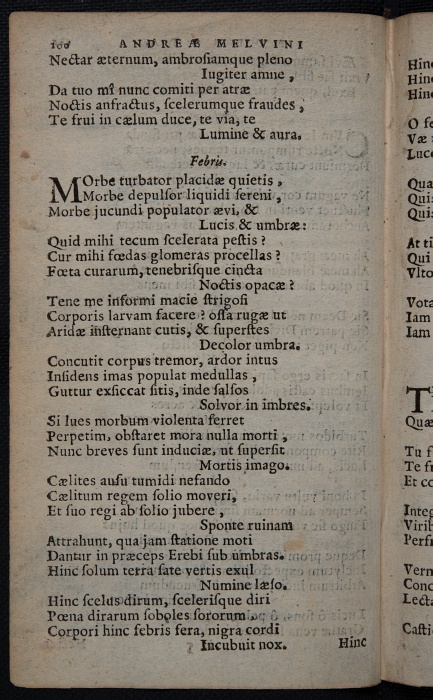 100 ANDREÆ MELVINI
Nectar æternum, ambrosiamque pleno
Iugiter amne,
Da tuo mî nunc comiti per atræ
Noctis anfractus, scelerumque fraudes,
Te frui in cælum duce, te via, te
Lumine & aura.
Febris.
MOrbe turbator placidæ quietis,
Morbe depulsor liquidi sereni,
Morbe jucundi populator ævi, &
Lucis & umbræ:
Quid mihi tecum scelerata pestis?
Cur mihi fœdas glomeras procellas?
Fœta curarum, tenebrisque cincta
Noctis opacæ?
Tene me informi macie strigosi
Corporis larvam facere? ossa rugæ ut
Aridæ insternant cutis, & superstes
Decolor umbra.
Concutit corpus tremor, ardor intus
Insidens imas populat medullas,
Guttur exsiccat sitis, inde salsos
Solvor in imbres.
Si lues morbum violenta ferret
Perpetim, obstaret mora nulla morti,
Nunc breves sunt induciæ, ut supersit
Mortis imago.
Cælites ausu tumidi nefando
Cælitum regem solio moveri,
Et suo regi ab solio jubere,
Sponte ruinam
Attrahunt, qua jam statione moti
Dantur in præceps Erebi sub umbras.
Hinc solum terra sate vertis exul
Numine læso.
Hinc scelus dirum, scelerisque diri
Pœna dirarum soboles sororum.
Corpori hinc febris fera, nigra cordi
Incubuit nox.
Hinc
Hinc
Hinc
Hinc
O fe
Væ
Luce
Qua
Quis
Quis
At ti
Qui
Vlto
Vota
Iam
Iam
T
Quæ
Tu f
Te fr
Et cc
Integ
Virib
Perfr
Vern
Conc
Lecta
Casti